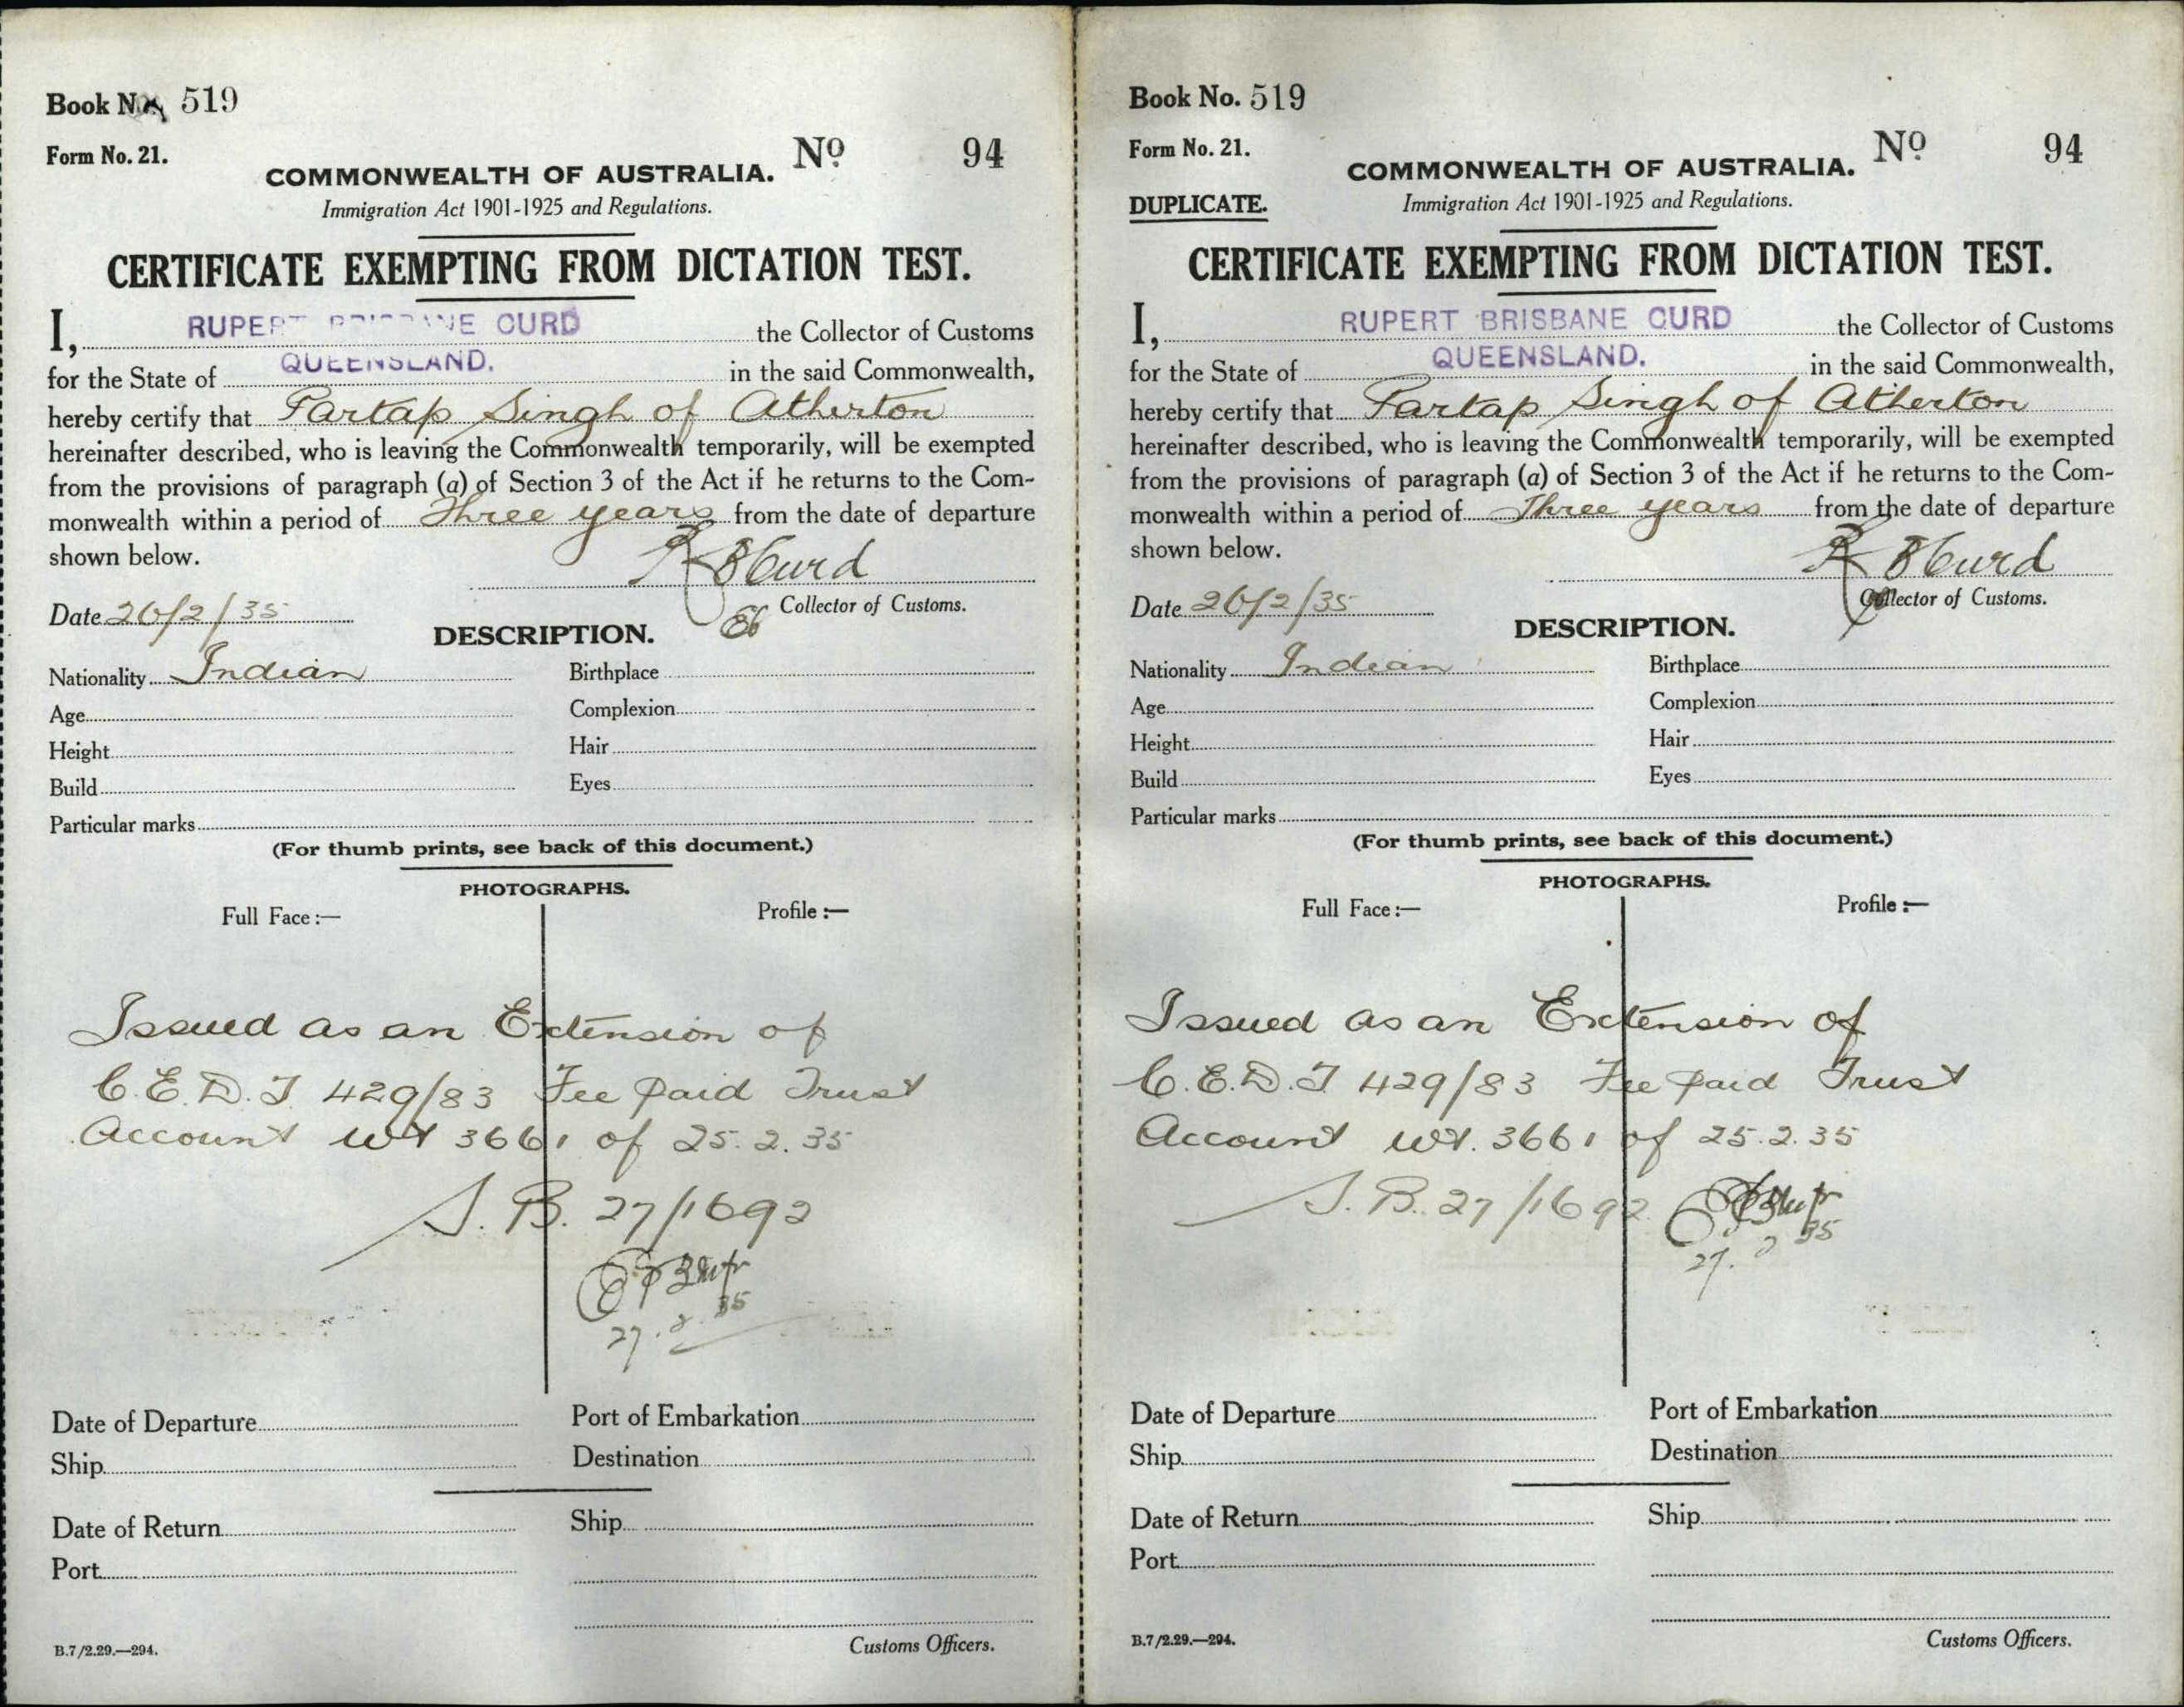 Book No. 519
Form No. 21.
No 94
COMMONWEALTH OF AUSTRALIA.
Immigration Act 1901-1925 and Regulations.
CERTIFICATE EXEMPTING FROM DICTATION TEST.
I, RUPERT BRISBANE CURD the Collector of Customs
for the State of QUEENSLAND. in the said Commonwealth,
hereby certify that Partap Singh of Atherton
hereinafter described, who is leaving the Commonwealth temporarily, will be exempted
from the provisions of paragraph (a) of Section 3 of the Act if he returns to the Com-
monwealth within a period of Three years from the date of departure
shown below.
R B Curd
Date 26/2/35 Collector of Customs.
DESCRIPTION.
Nationality Indian Birthplace
Age Complexion
Height Hair
Build Eyes
Particular marks
(For thumb prints, see back of this document.)
PHOTOGRAPHS.
Full Face :— Profile :—
Issued as an Extension of
C.E.D.T 429/83 Fee paid Trust
Account wt 3661 of 25.2.35
S.B. 27/1692
27.2.35
Date of Departure Port of Embarkation
Ship Destination
Date of Return Ship
Port
B.7/2.29.—294. Customs Officers.
Book No. 519
Form No. 21.
No 94
COMMONWEALTH OF AUSTRALIA.
DUPLICATE. Immigration Act 1901-1925 and Regulations.
CERTIFICATE EXEMPTING FROM DICTATION TEST.
I, RUPERT BRISBANE CURD the Collector of Customs
for the State of QUEENSLAND. in the said Commonwealth,
hereby certify that Partap Singh of Atherton
hereinafter described, who is leaving the Commonwealth temporarily, will be exempted
from the provisions of paragraph (a) of Section 3 of the Act if he returns to the Com-
monwealth within a period of Three years from the date of departure
shown below.
R B Curd
Date 26/2/35 Collector of Customs.
DESCRIPTION.
Nationality Indian Birthplace
Age Complexion
Height Hair
Build Eyes
Particular marks
(For thumb prints, see back of this document.)
PHOTOGRAPHS.
Full Face :— Profile :—
Issued as an Extension of
C.E.D.T 429/83 Fee paid Trust
Account wt. 3661 of 25.2.35
S.B. 27/1692
27.2.35
Date of Departure Port of Embarkation
Ship Destination
Date of Return Ship
Port
B.7/2.29.—294. Customs Officers.